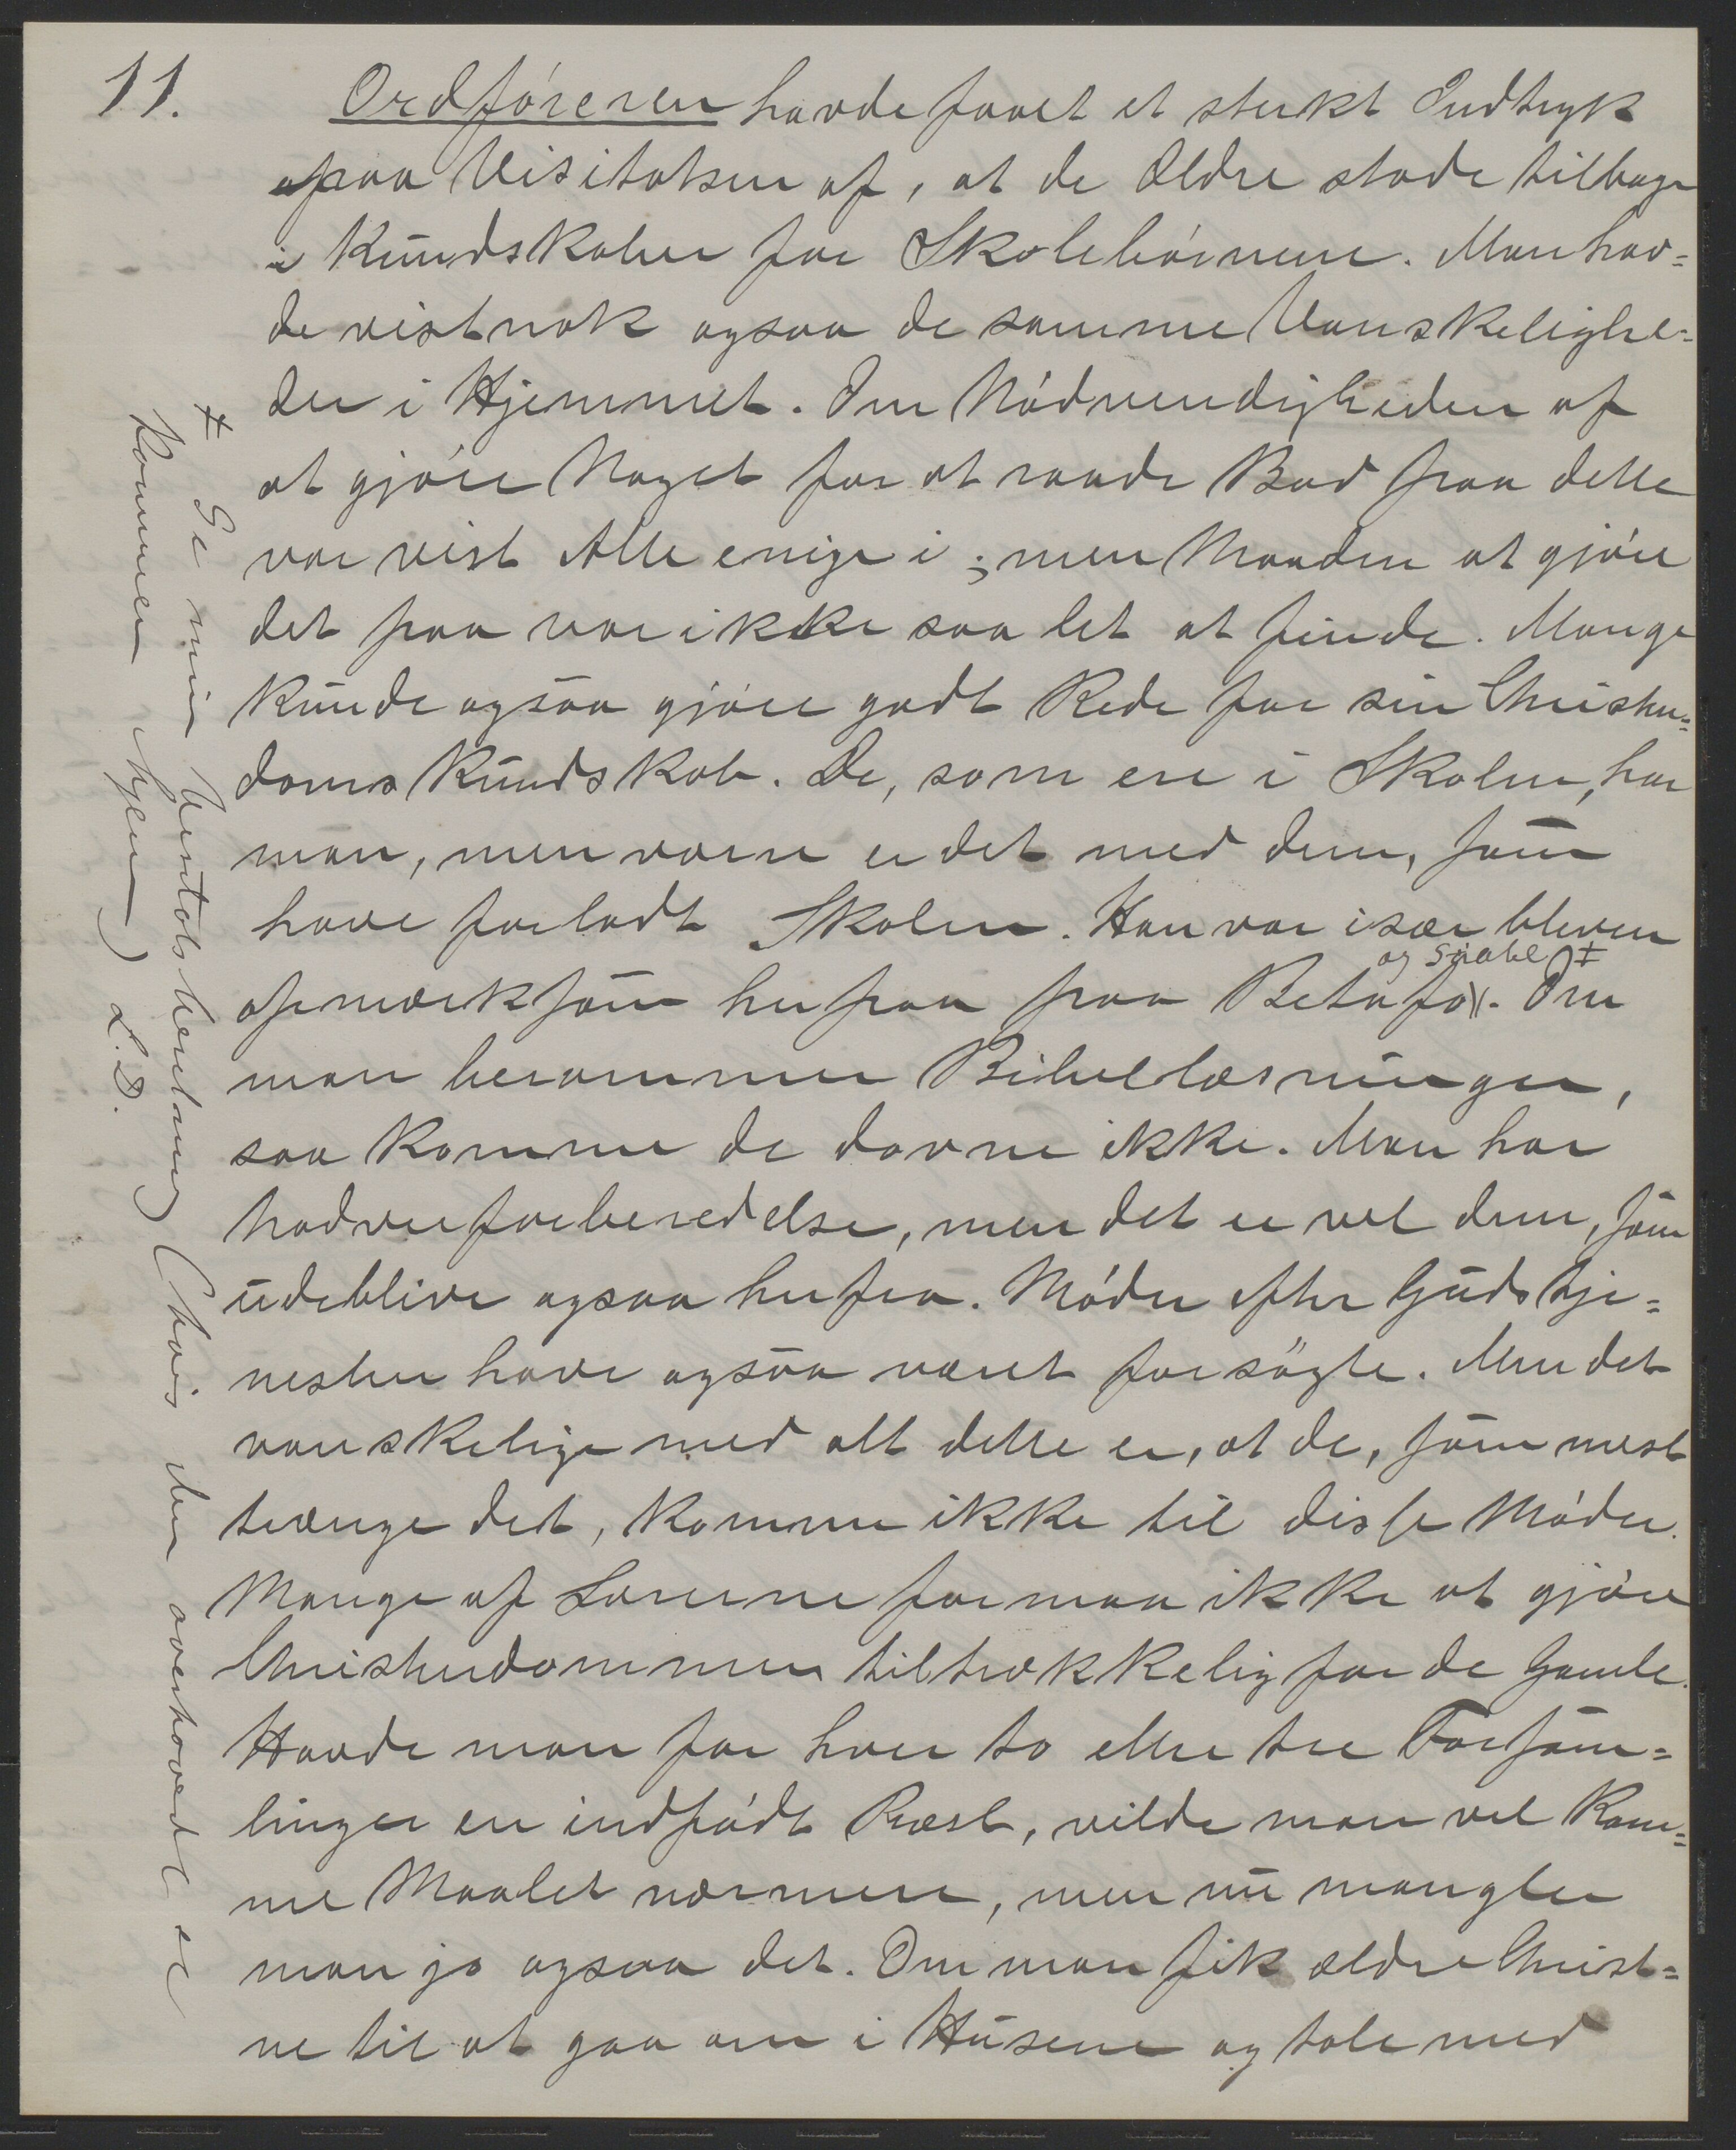 11.
Ordföreren havde faaet et sterkt Indtryk
paa Visitatsen af, at de Ældre stode tilbage
i Kundskaber for Skolebörnene. Man hav=
de vistnok ogsaa de samme Vanskelighe=
der i Hjemmet. Om Nödvendigheden af
at gjöre Noget for at raade Bod paa dette
var vist Alle enige i; men Maaden at gjöre
det paa var ikke saa let at finde. Mange
kunde ogsaa gjöre godt Rede for sin Christen=
doms Kundskab. De, som ere i Skolen, har
man, men værre er det med dem, som
have forladt Skolen. Han var især bleven
og Sirabe ‡
opmærksom herpaa paa Betafo. Om
man berammer Bibellæsninger,
saa komme de dovne ikke. Man har
Nadverforberedelse, men det er vel dem, som
udeblive ogsaa herfra. Möder efter Gudstje=
nesten have ogsaa været forsögte. Men det
vanskelige med alt dette er, at de, som mest
trænge det, komme ikke til disse Möder.
Mange af Lærerne formaa ikke at gjöre
Christendommen tiltrækkelig for de Gamle.
Havde man for hver to eller tre Forsam=
linger en indfödt Præst, vilde man vel kom=
me Maalet nærmere, men nu mangler
man jo ogsaa det. Om man fik ældre Christ=
ne til at gaa om i Husene og tale med
‡ Se min (hvis den overhoved et
kommer hjem) L. D.